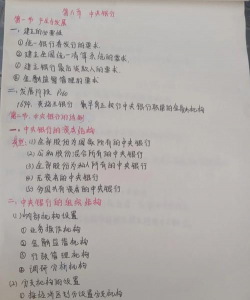 第六章 中央银行
第一节 产生与发展
一、建立的必要性
① 统一银行券发行的需求
② 建立全国统一清算系统的需求
③ 建立银行最后贷款人的需求
④ 金融监督管理的需求
二、发展阶段
1694. 英格兰银行 最早真正执行中央银行职能的金融机构
第二节、中央银行的体制
一、中央银行的领导机构
类型：(1) 全部股份为国家所有的中央银行
(2) 公私股份混合所有的中央银行
(3) 全部股份为私人所有的中央银行
(4) 无资本的中央银行
(5) 多国共有资本的中央银行
二、中央银行的组织结构
(1) 内部机构设置
① 业务操作机构
② 金融监管机构
③ 行政管理机构
④ 调研分析机构
(2) 分支机构的设置
① 按经济区划分设置分支机构